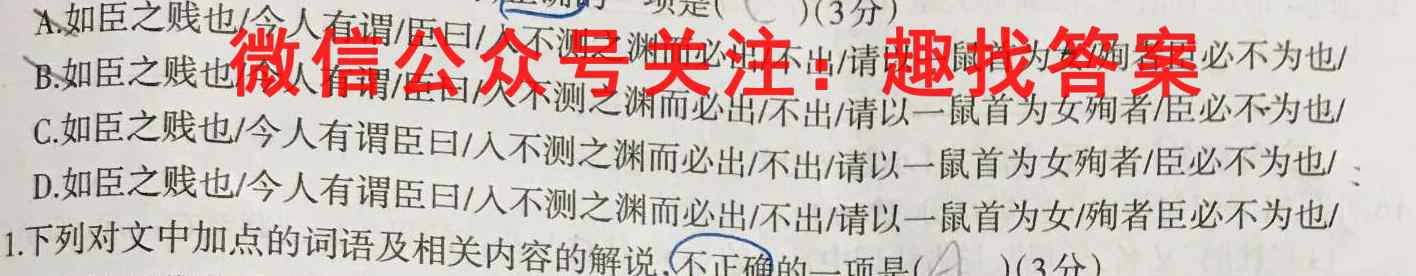 正确的一项是( )(3分)
A.如臣之贱也/今人有谓/臣曰/入不测之渊而必出/不出/请以一鼠首为女/殉者臣必不为也/
微信公众号关注：趣找答案
B.如臣之贱也/今人有谓/臣曰/入不测之渊而必出/不出/请以一鼠首为女殉者/臣必不为也/
C.如臣之贱也/今人有谓臣曰/入不测之渊而必出/不出/请以一鼠首为女殉者/臣必不为也/
D.如臣之贱也/今人有谓臣曰/入不测之渊而必出/不出/请以一鼠首为女/殉者臣必不为也/
1.下列对文中加点的词语及相关内容的解说,不正确的一项是( A )(3分)